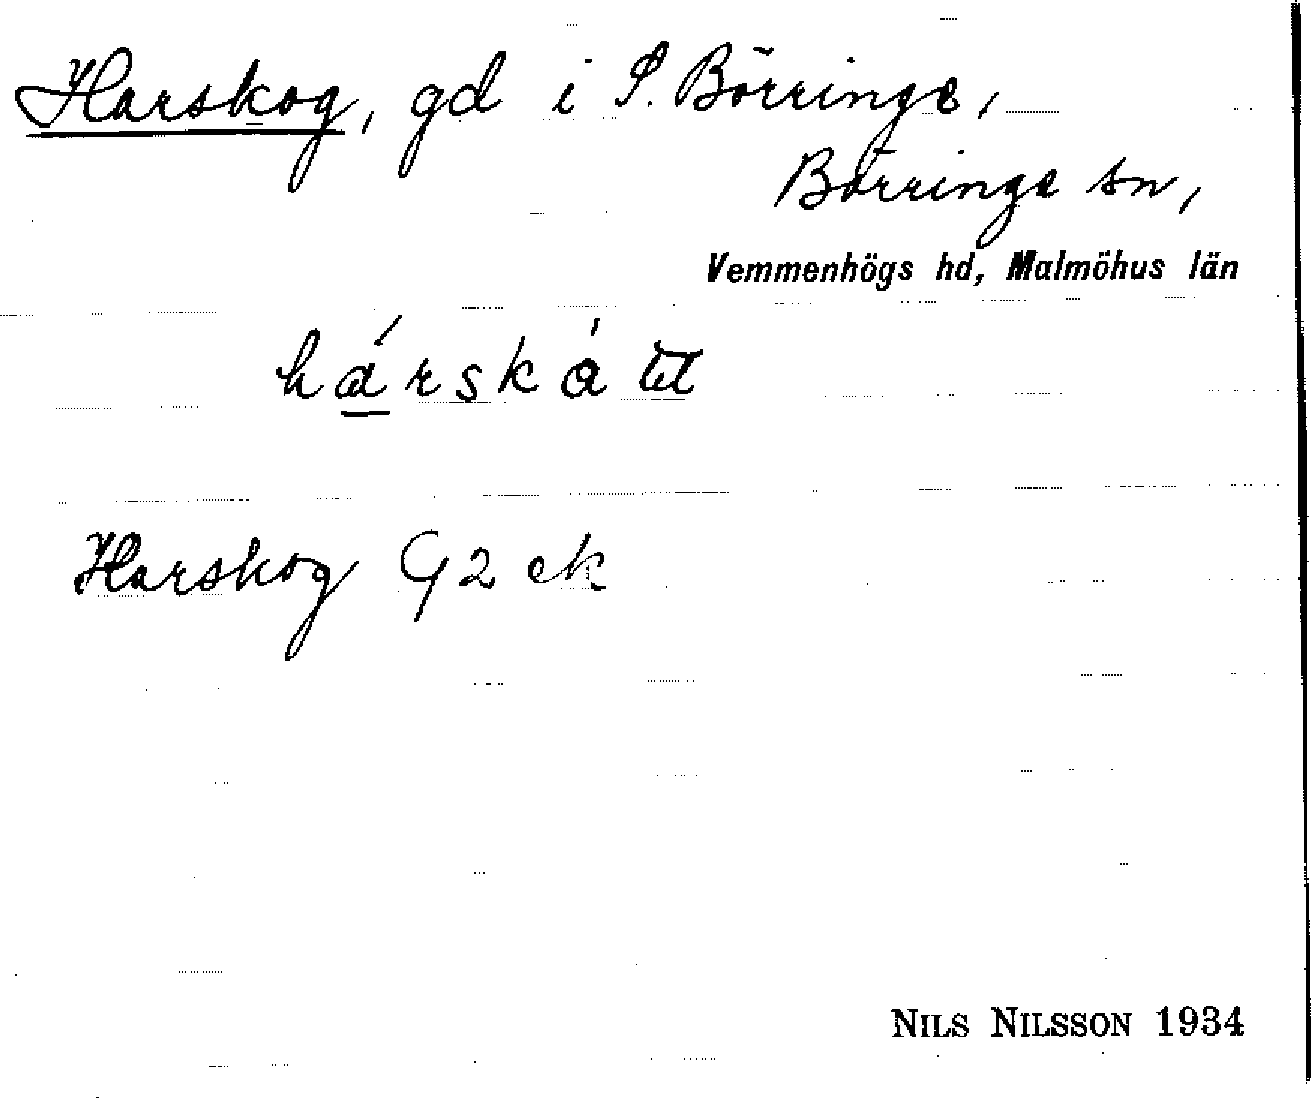 Harskog, gd i S. Börringe,
Börringe sn,
Vemmenhögs hd, Malmöhus län
Harskog G2 ek
NILS NILSSON 1934